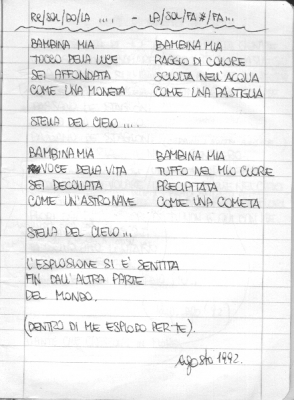 RE/SOL/DO/LA .... - LA/SOL/FA#/FA...
BAMBINA MIA BAMBINA MIA
TOCCO DELLA LUCE RAGGIO DI COLORE
SEI AFFONDATA SCIOLTA NELL'ACQUA
COME UNA MONETA COME UNA PASTIGLIA
STELLA DEL CIELO ....
BAMBINA MIA BAMBINA MIA
VOCE DELLA VITA TUFFO NEL MIO CUORE
SEI DECOLLATA PRECIPITATA
COME UN'ASTRONAVE COME UNA COMETA
STELLA DEL CIELO ...
L'ESPLOSIONE SI E' SENTITA
FIN DALL'ALTRA PARTE
DEL MONDO.
(DENTRO DI ME ESPLODO PER TE).
Agosto 1992.